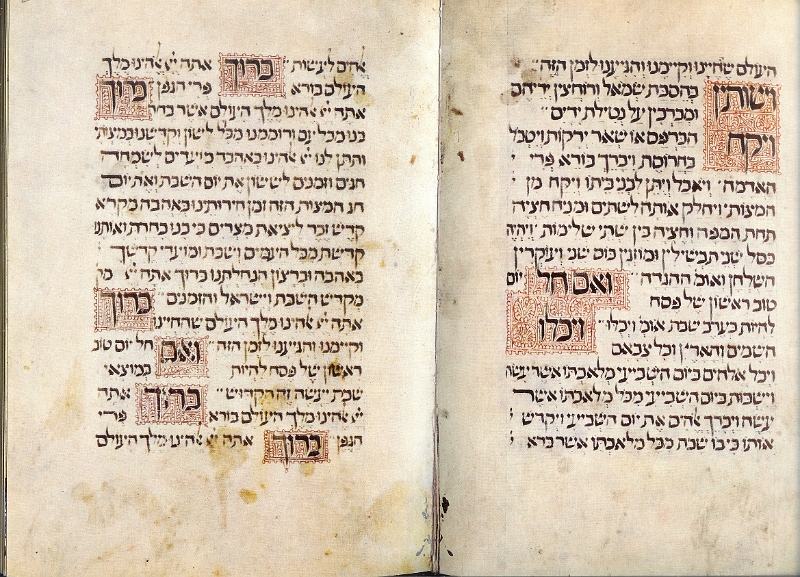 העולם שהחיינו וקיימנו והגיענו לזמן הזה
וישותין בהסבת שמאל ורוחצין ידיהם
ומברכין על נטילת ידים
ויקח הכרפס או שאר ירקות ויטבל
בחרוסת ויברך בורא פרי
האדמה ויאכל ויתן לבני ביתו ויקח מן
המצות ויחלק אותה לשתים ומניח חציה
תחת המפה וחציה בין שתי שלימות ויהיה
בסל שני תבשילין ומוזגין כוס שני ועוקרין
השלחן ואומ׳ ההגדה ואם חל יום
טוב ראשון של פסח
להיות בערב שבת אומ׳ ויכלו ויכלו
השמים והארץ וכל צבאם
ויכל אלהים ביום השביעי מלאכתו אשר עשה
וישבות ביום השביעי מכל מלאכתו אשר
עשה ויברך אהים את יום השביעי ויקדש
אותו כי בו שבת מכל מלאכתו אשר ברא
אהים לעשות ברוך אתה יי אהינו מלך
העולם בורא פרי הגפן ברוך
אתה יי אהינו מלך העולם אשר בחר
בנו מכל עם ורוממנו מכל לשון וקדשנו במצותיו
ותתן לנו יי אהינו באהבה מועדים לשמחה
חגים וזמנים לששון את יום השבת ואת יום
חג המצות הזה זמן חירותינו באהבה מקרא
קדש זכר ליציאת מצרים כי בנו בחרת ואותנו
קדשת מכל העמים ושבת ומועדי קדשך
באהבה וברצון הנחלתנו ברוך אתה יי
מקדש השבת וישראל והזמנים ברוך
אתה יי אהינו מלך העולם שהחיינו
וקיימנו והגיענו לזמן הזה ואם חל יום טוב
ראשון של פסח להיות במוצאי
שבת יעשה זה הקדוש ברוך אתה
יי אהינו מלך העולם בורא פרי
הגפן ברוך אתה יי אהינו מלך העולם